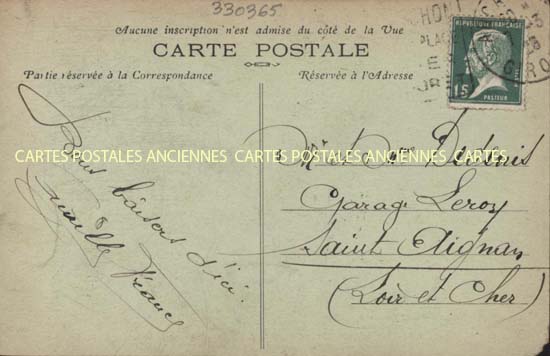 330365
Aucune inscription n'est admise du côté de la Vue
CARTE POSTALE
Partie réservée à la Correspondance
Réservée à l'Adresse
RÉPUBLIQUE FRANÇAISE
15
PASTEUR
CARTES POSTALES ANCIENNES CARTES POSTALES ANCIENNES
Bons baisers d'ici.
Mr et Mme
Garage Leroy
Saint Aignan
(Loir et Cher)